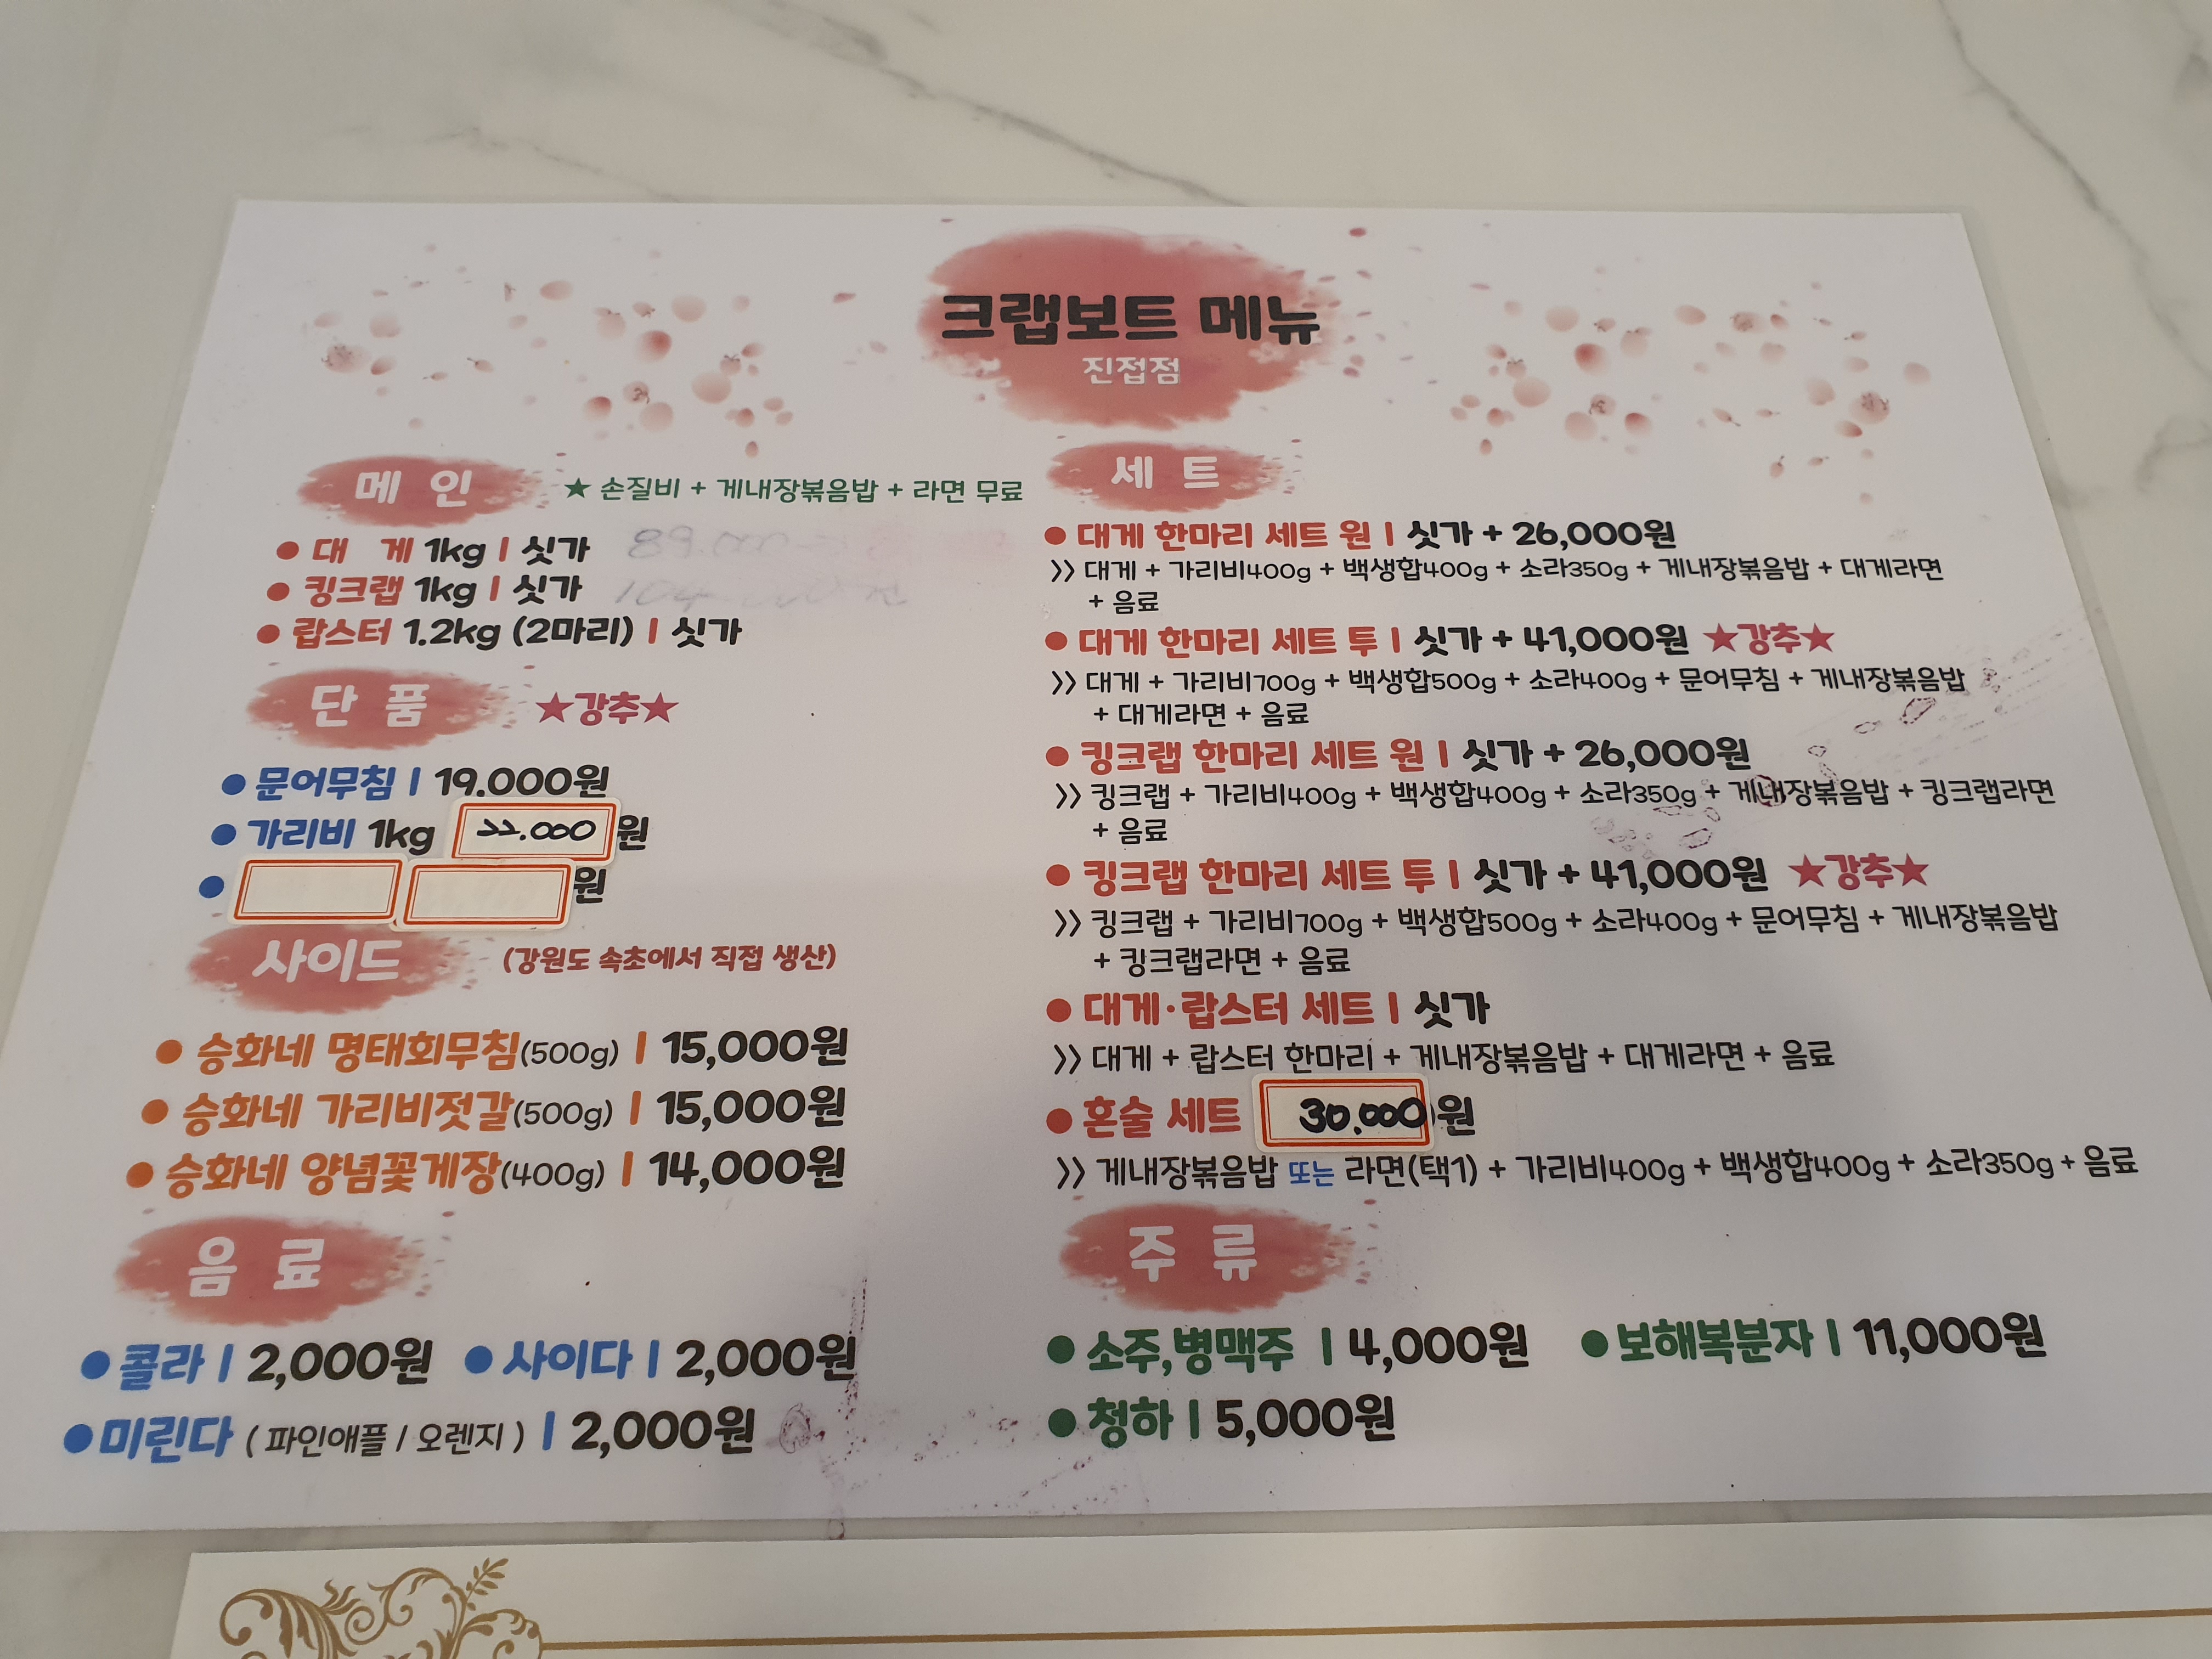 크랩보트 메뉴
진접점
메 인 ★ 손질비 + 게내장볶음밥 + 라면 무료
● 대 게 1kg | 싯가
● 킹크랩 1kg | 싯가
● 랍스터 1.2kg (2마리) | 싯가
단 품 ★강추★
● 문어무침 | 19,000원
● 가리비 1kg 22.000 원
● 원
사이드 (강원도 속초에서 직접 생산)
● 승화네 명태회무침(500g) | 15,000원
● 승화네 가리비젓갈(500g) | 15,000원
● 승화네 양념꽃게장(400g) | 14,000원
음 료
● 콜라 | 2,000원 ● 사이다 | 2,000원
● 미린다 ( 파인애플 / 오렌지 ) | 2,000원
세 트
● 대게 한마리 세트 원 | 싯가 + 26,000원
>> 대게 + 가리비400g + 백생합400g + 소라350g + 게내장볶음밥 + 대게라면
+ 음료
● 대게 한마리 세트 투 | 싯가 + 41,000원 ★강추★
>> 대게 + 가리비700g + 백생합500g + 소라400g + 문어무침 + 게내장볶음밥
+ 대게라면 + 음료
● 킹크랩 한마리 세트 원 | 싯가 + 26,000원
>> 킹크랩 + 가리비400g + 백생합400g + 소라350g + 게내장볶음밥 + 킹크랩라면
+ 음료
● 킹크랩 한마리 세트 투 | 싯가 + 41,000원 ★강추★
>> 킹크랩 + 가리비700g + 백생합500g + 소라400g + 문어무침 + 게내장볶음밥
+ 킹크랩라면 + 음료
● 대게·랍스터 세트 | 싯가
>> 대게 + 랍스터 한마리 + 게내장볶음밥 + 대게라면 + 음료
● 혼술 세트 30.000 원
>> 게내장볶음밥 또는 라면(택1) + 가리비400g + 백생합400g + 소라350g + 음료
주 류
● 소주,병맥주 | 4,000원 ● 보해복분자 | 11,000원
● 청하 | 5,000원